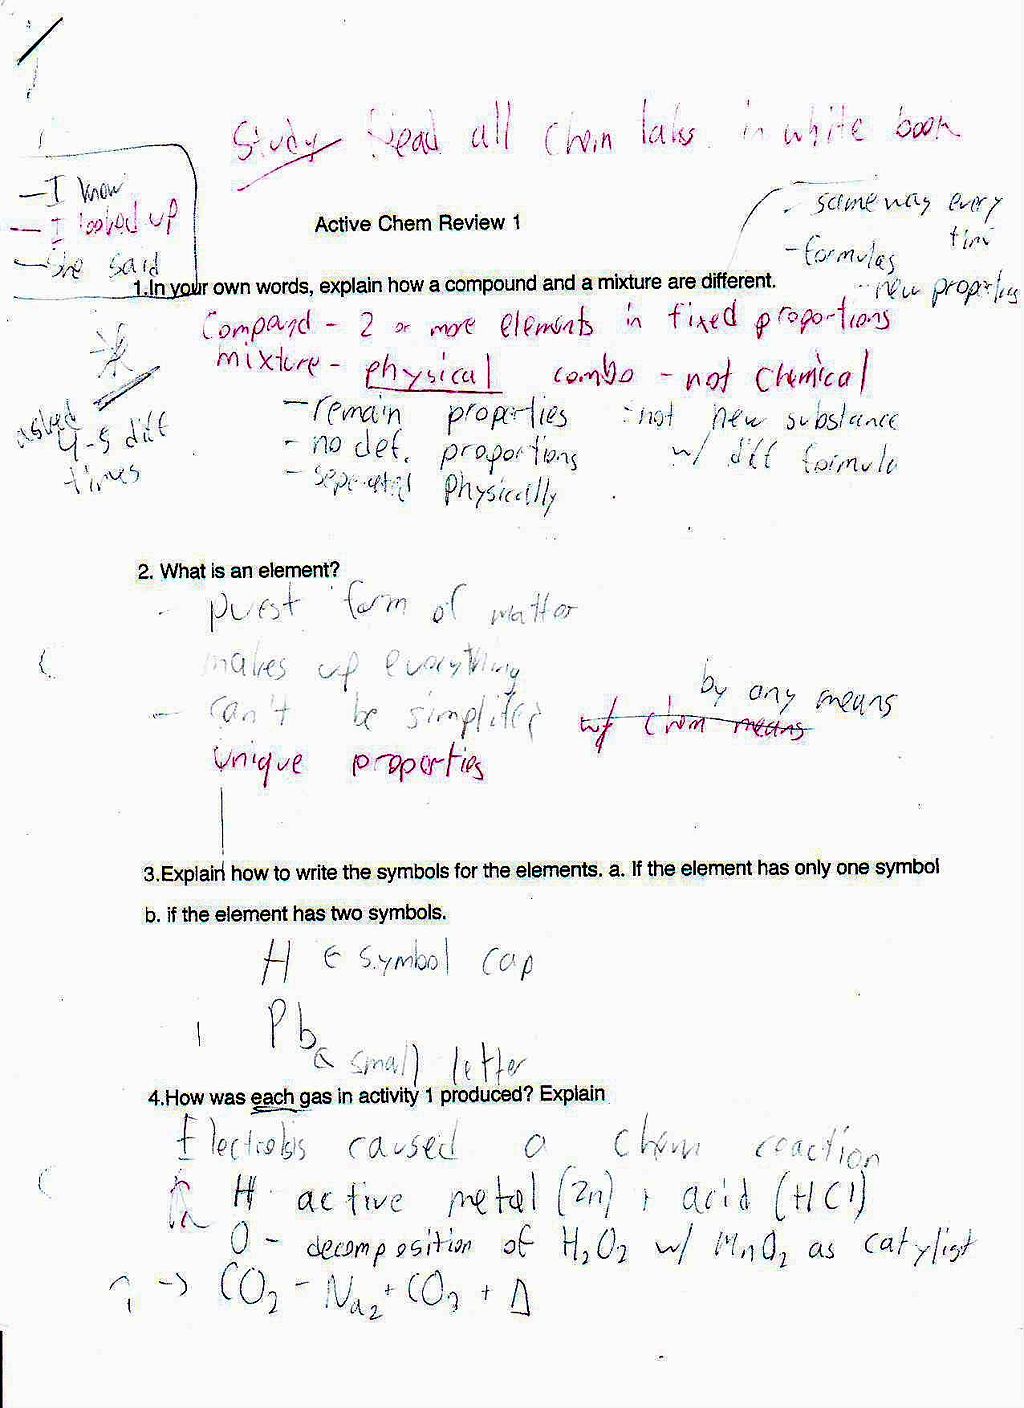 Study Read all Chem labs in white book
- I know
- I looked up
- She said
Active Chem Review 1
- same way every time
- formulas
- new properties
1.In your own words, explain how a compound and a mixture are different.
Compand - 2 or more elements in fixed proportions
mixture - physical combo - not chemical
asked 4-5 diff times
- remain properties
- no def. proportions
- seperated physically
- not new substance
w/ diff formula
2. What is an element?
- purest form of matter
makes up everything
- can't be simplified w/ chem means by any means
unique properties
3.Explain how to write the symbols for the elements. a. If the element has only one symbol
b. if the element has two symbols.
H ← symbol cap
Pb
small letter
4.How was each gas in activity 1 produced? Explain
caused a chem reaction
H active metal (Zn) + acid (HCl)
O - decomposition of H₂O₂ w/ MnO₂ as catylist
→ CO₂ - Na₂ + CO₃ + Δ